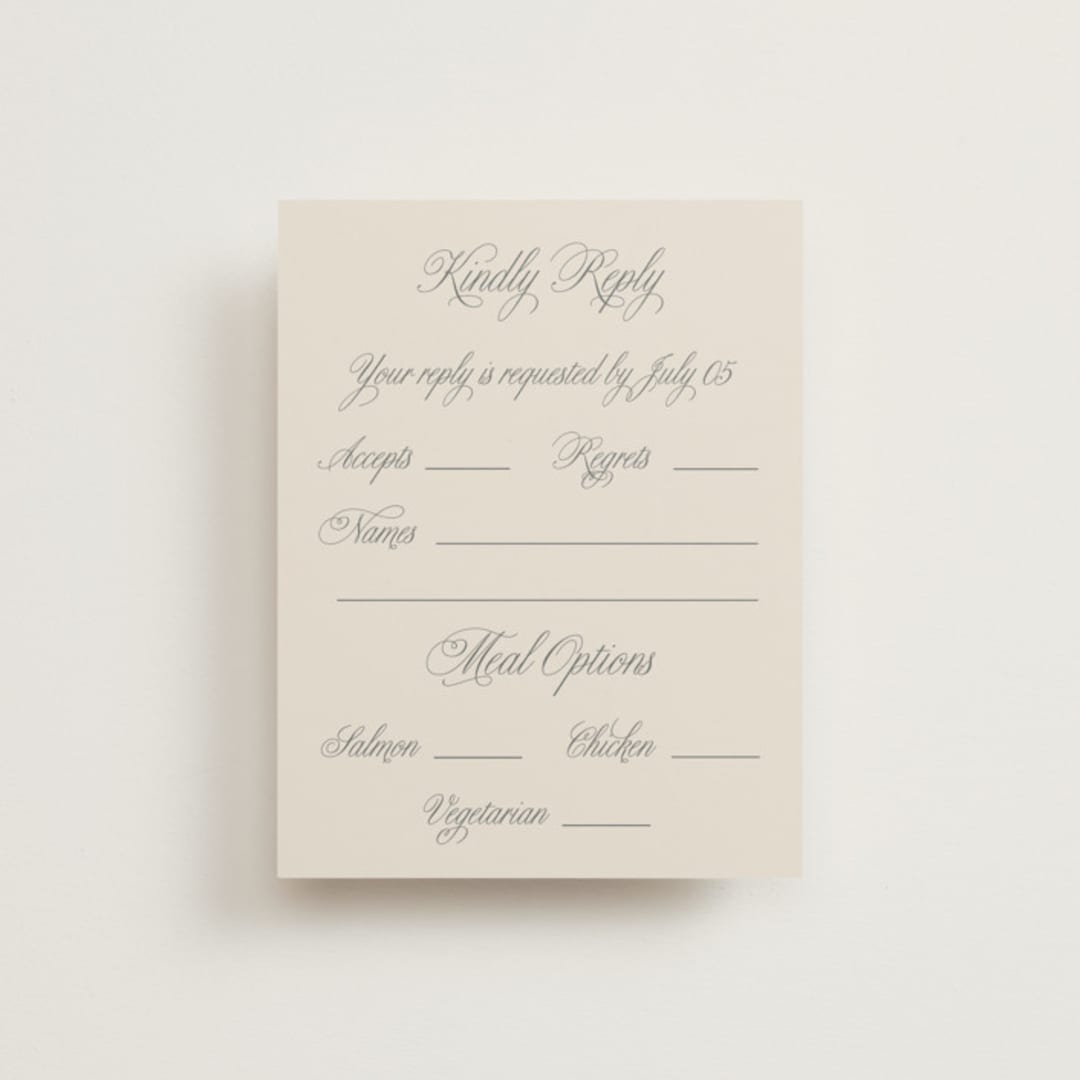 Kindly Reply
Your reply is requested by July 05
Accepts ______ Regrets ______
Names ______________________
______________________________
Meal Options
Salmon ______ Chicken ______
Vegetarian ______